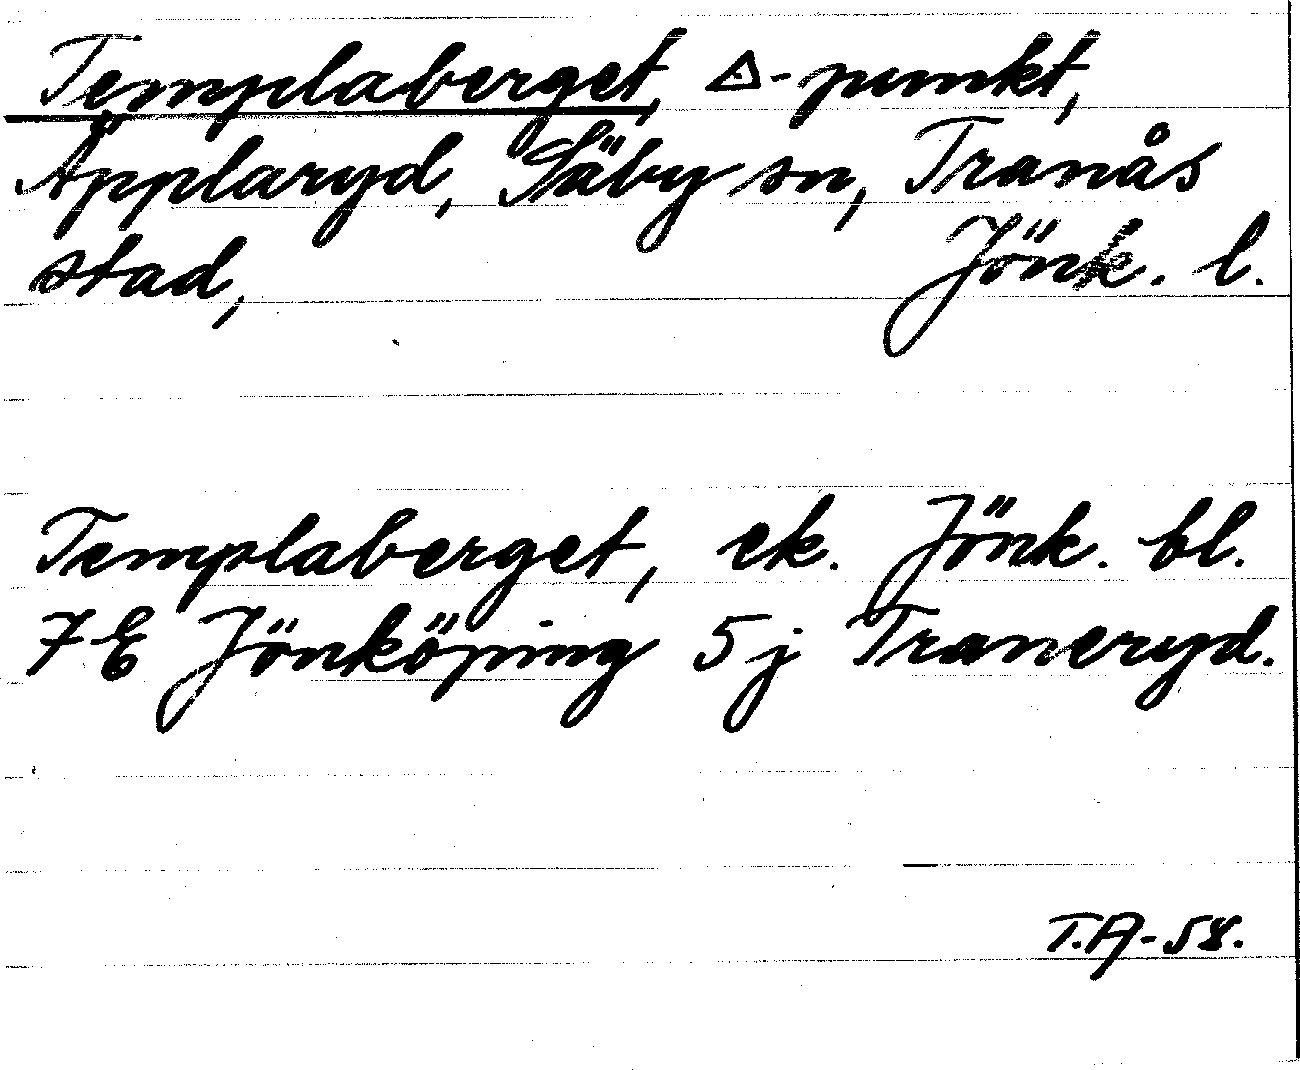 Templaberget, △-punkt,
Äpplaryd, Säby sn, Tranås
stad, Jönk. l.
Templaberget, ek. Jönk. bl.
7E Jönköping 5j Traneryd.
T.A-58.